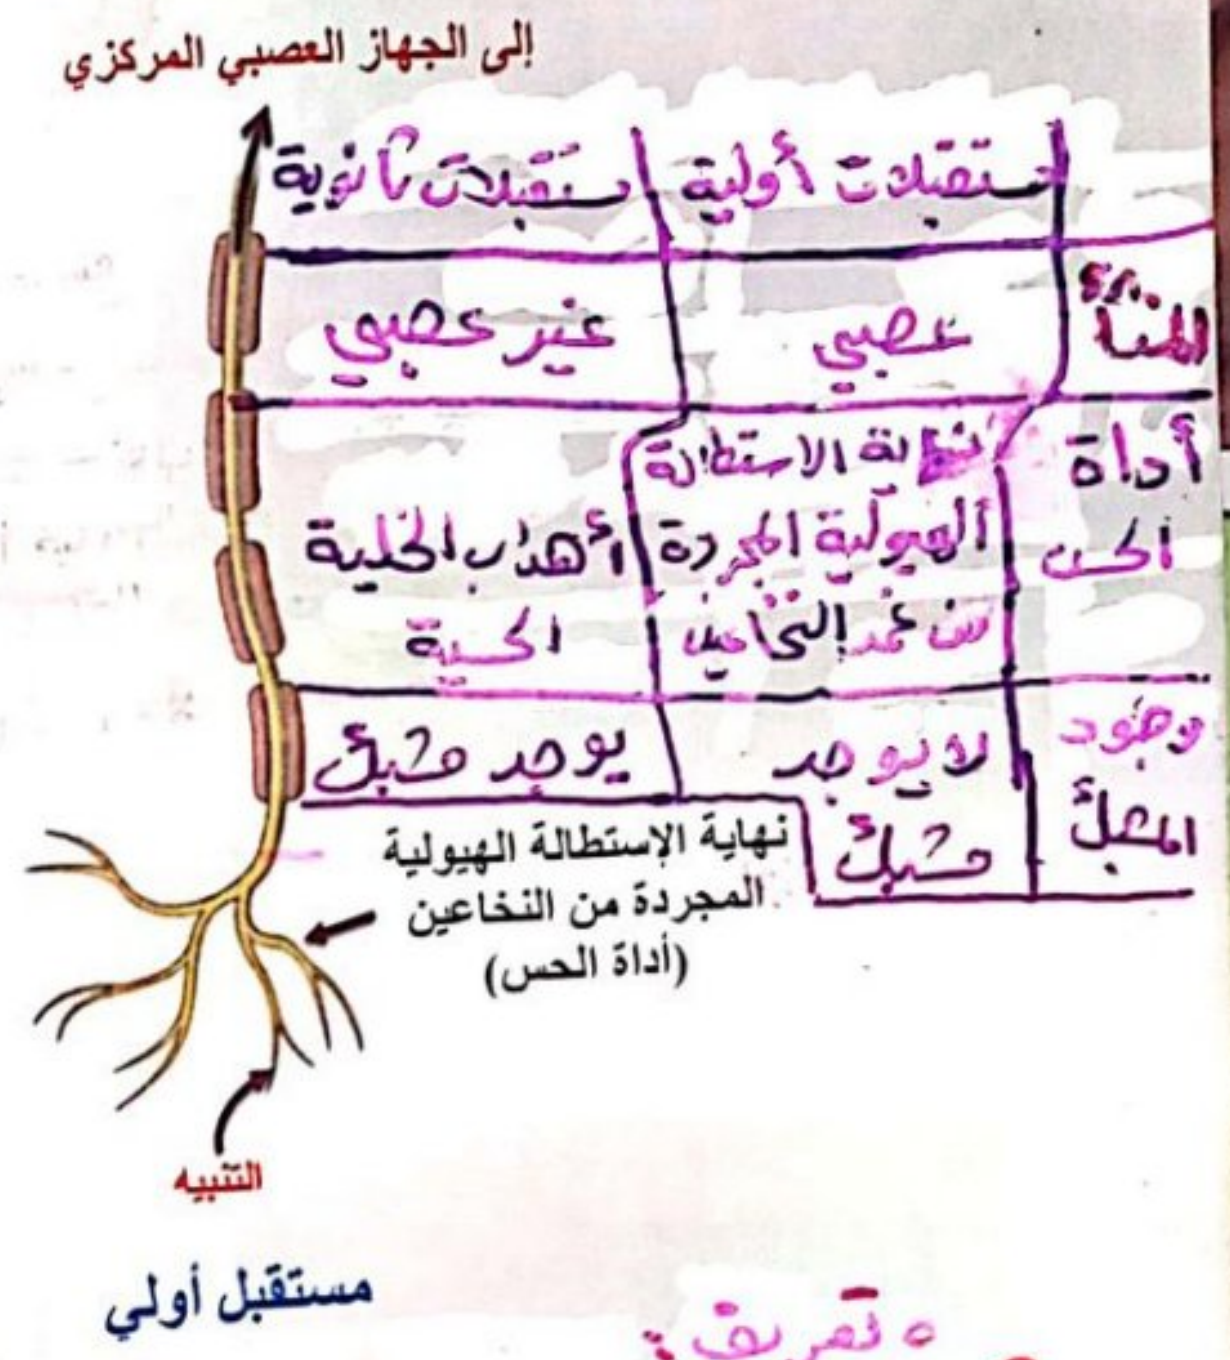 إلى الجهاز العصبي المركزي
مستقبلات أولية مستقبلات ثانوية
المنشأ عصبي غير عصبي
أداة الحس
نهاية الاستطالة
الهيولية المجردة
من غمد النخاعين
أهداب الخلية
الحسية
وجود المشبك
لا يوجد
مشبك
يوجد مشبك
نهاية الإستطالة الهيولية
المجردة من النخاعين
(أداة الحس)
التنبيه
مستقبل أولي
تعريف: